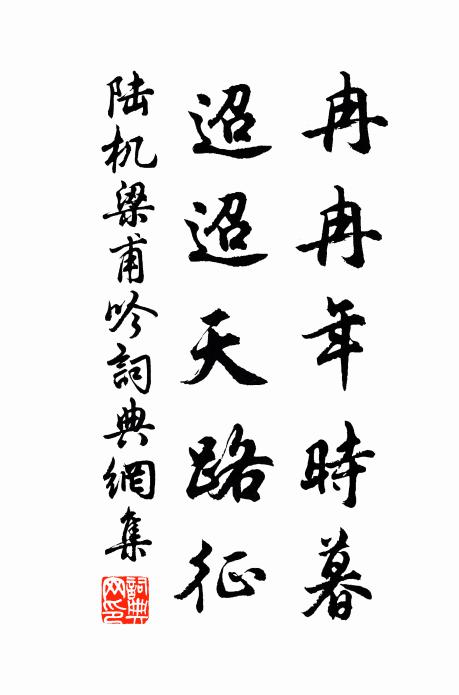 冉冉年時暮
迢迢天路征
陆机梁甫吟詞典網集
詞典网印